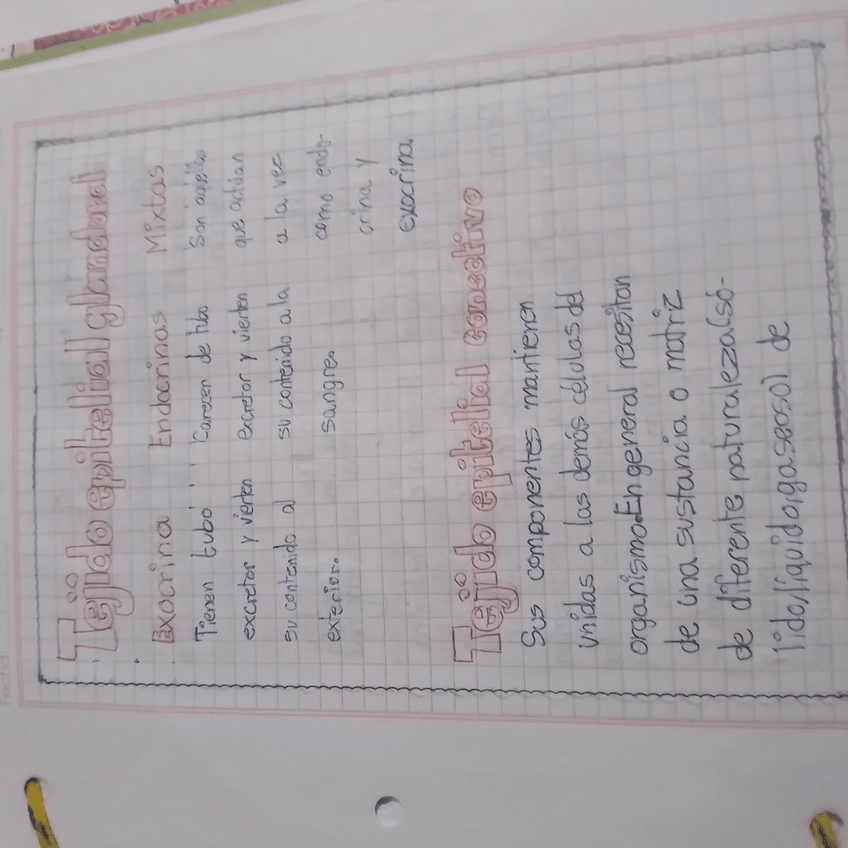 Tejido epitelial glandural
Exocrina
Tienen tubo
excretor y vierten
su contenido al
exterior.
Endocrinas
Carecen de tubo
excretor y vierten
su contenido a la
sangre.
Mixtas
Son aquellas
que actúan
a la vez
como endo-
crina y
exocrina
Tejido epitelial conectivo
Sus componentes mantienen
unidas a las demás células del
organismo. En general necesitan
de una sustancia o matriz
de diferente naturaleza (só-
lido, líquido, gaseoso) de